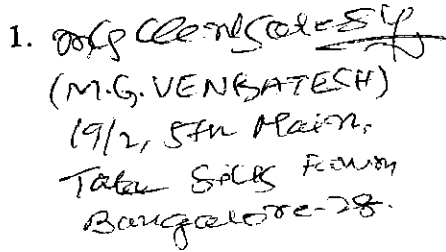 1.
(M.G. VENBATECH)
19/2, 5th Main,
Tata Silk Farm
Bangalore-28.